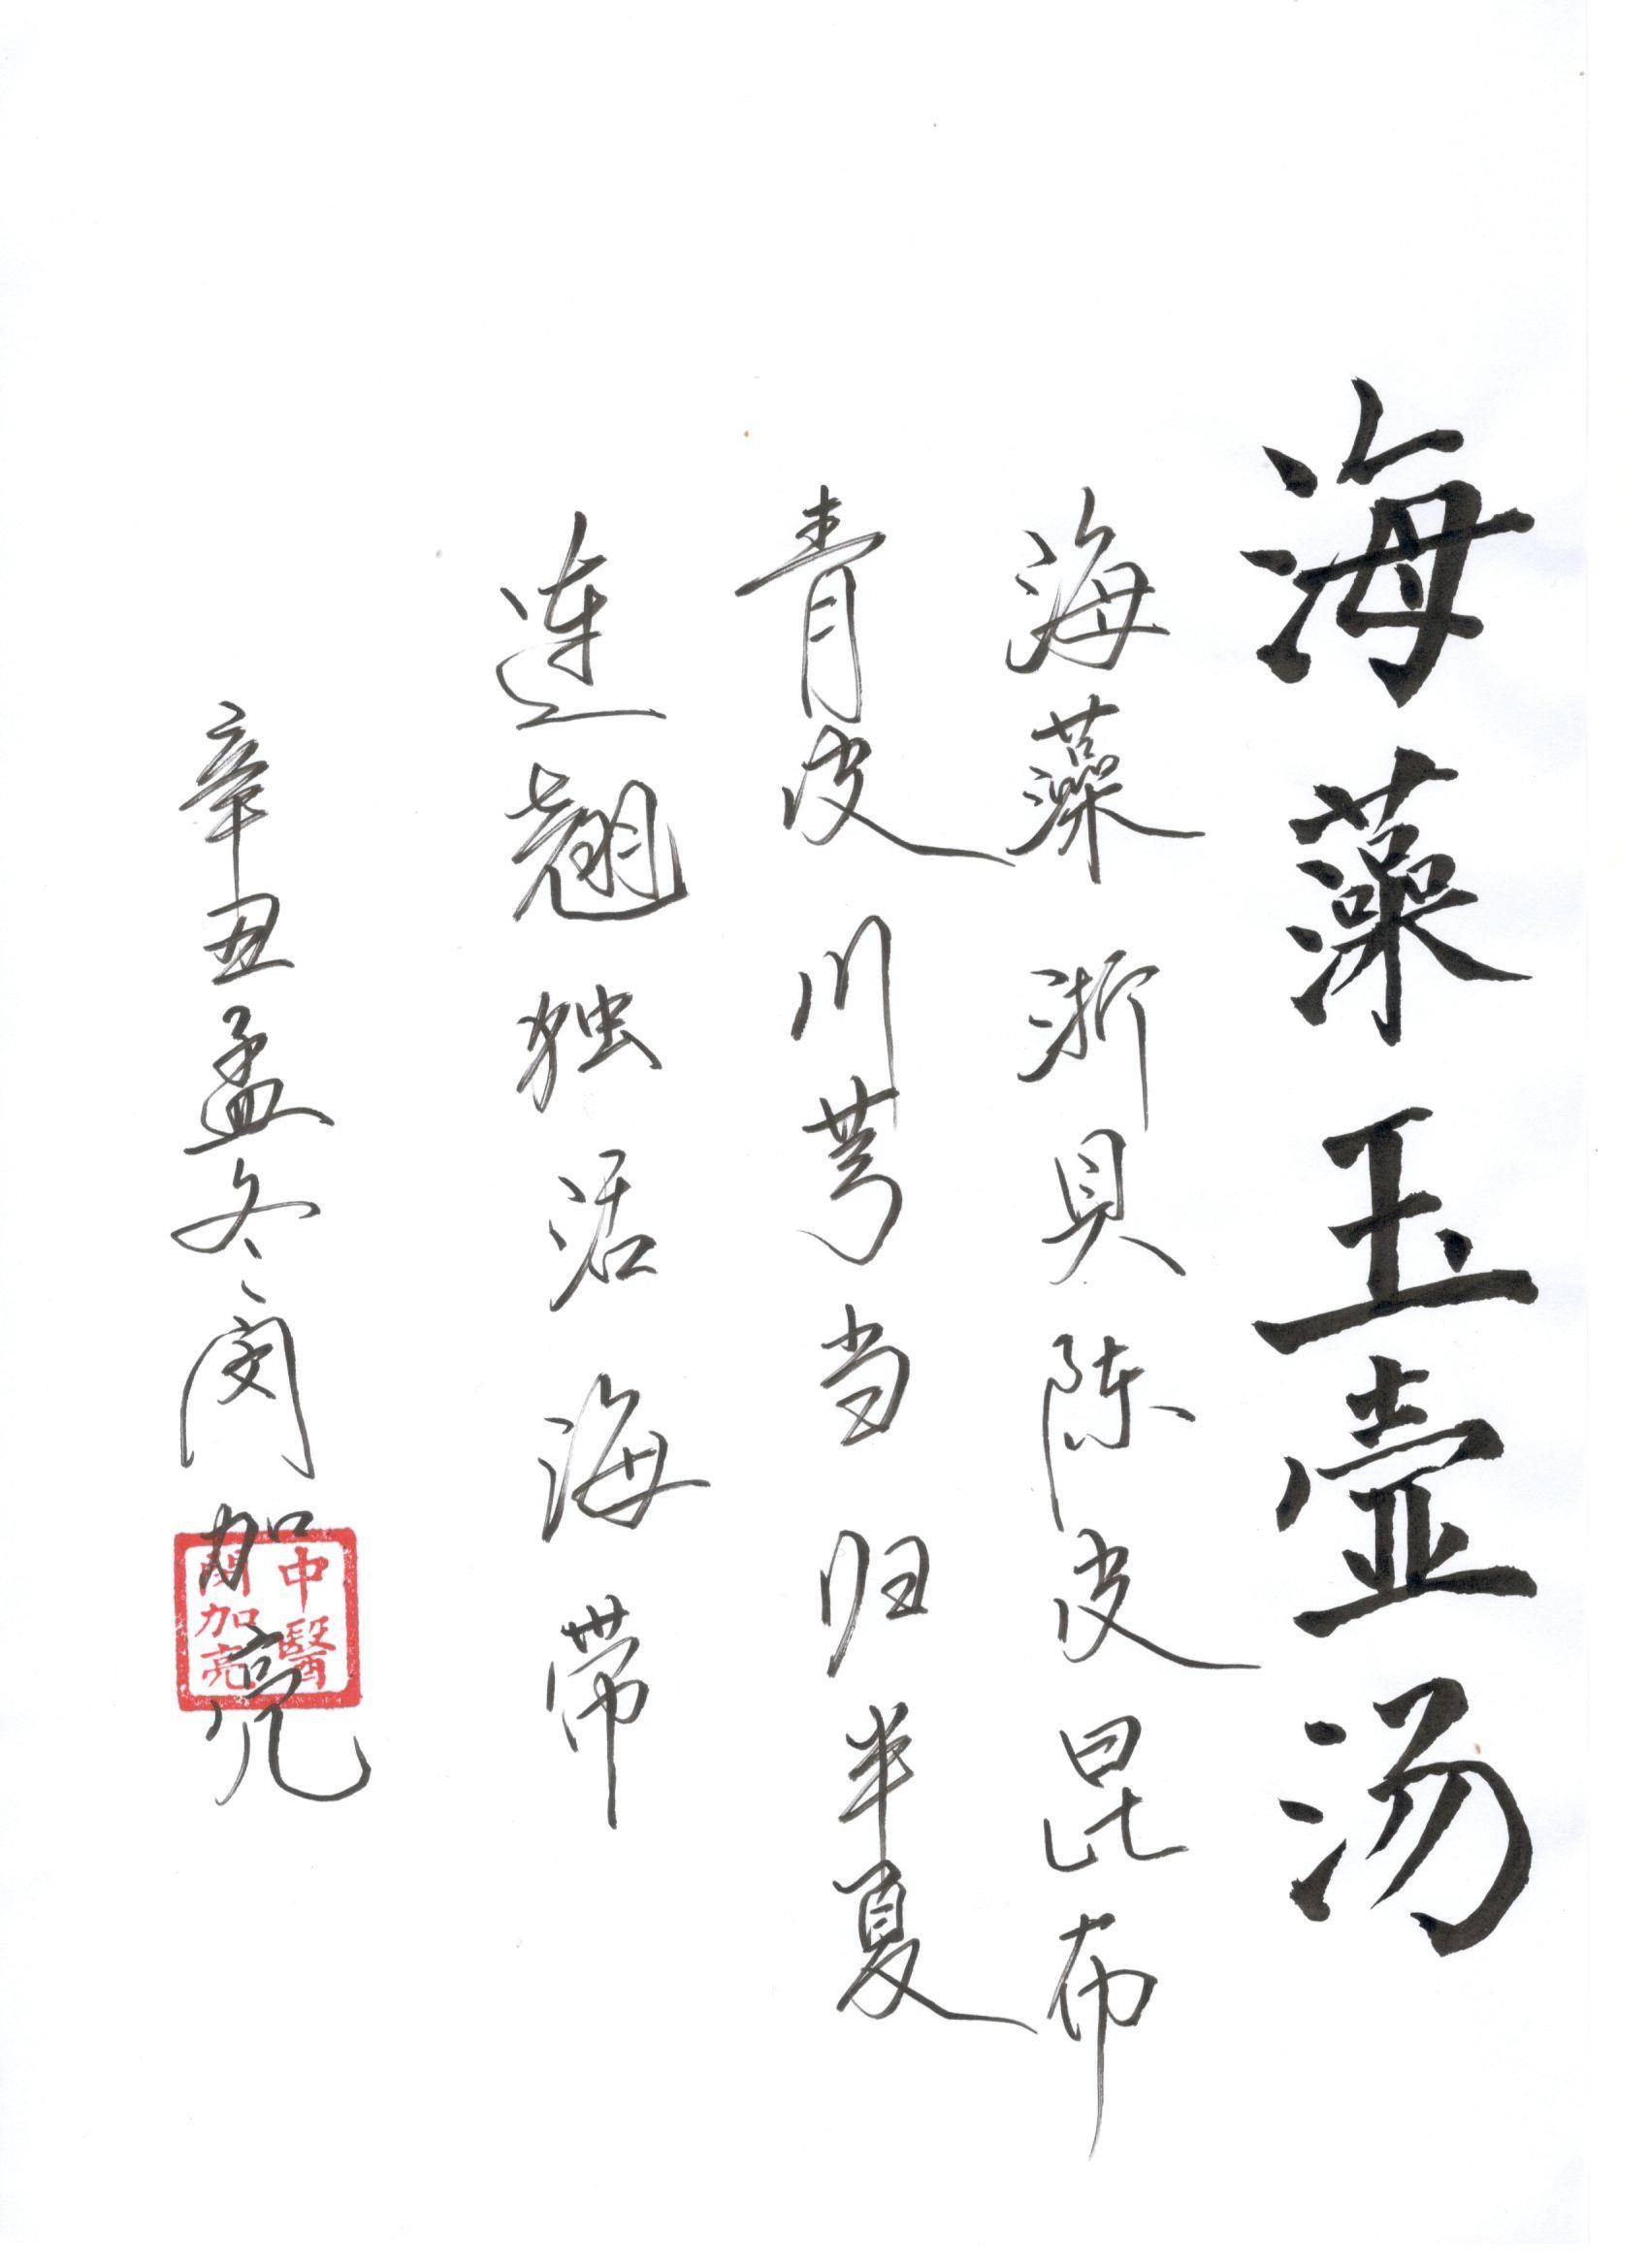 海藻玉壶汤
海藻 浙贝 陈皮 昆布
青皮 川芎 当归 半夏
连翘 独活 海带
辛丑孟冬闵加亮
中醫
閔加亮